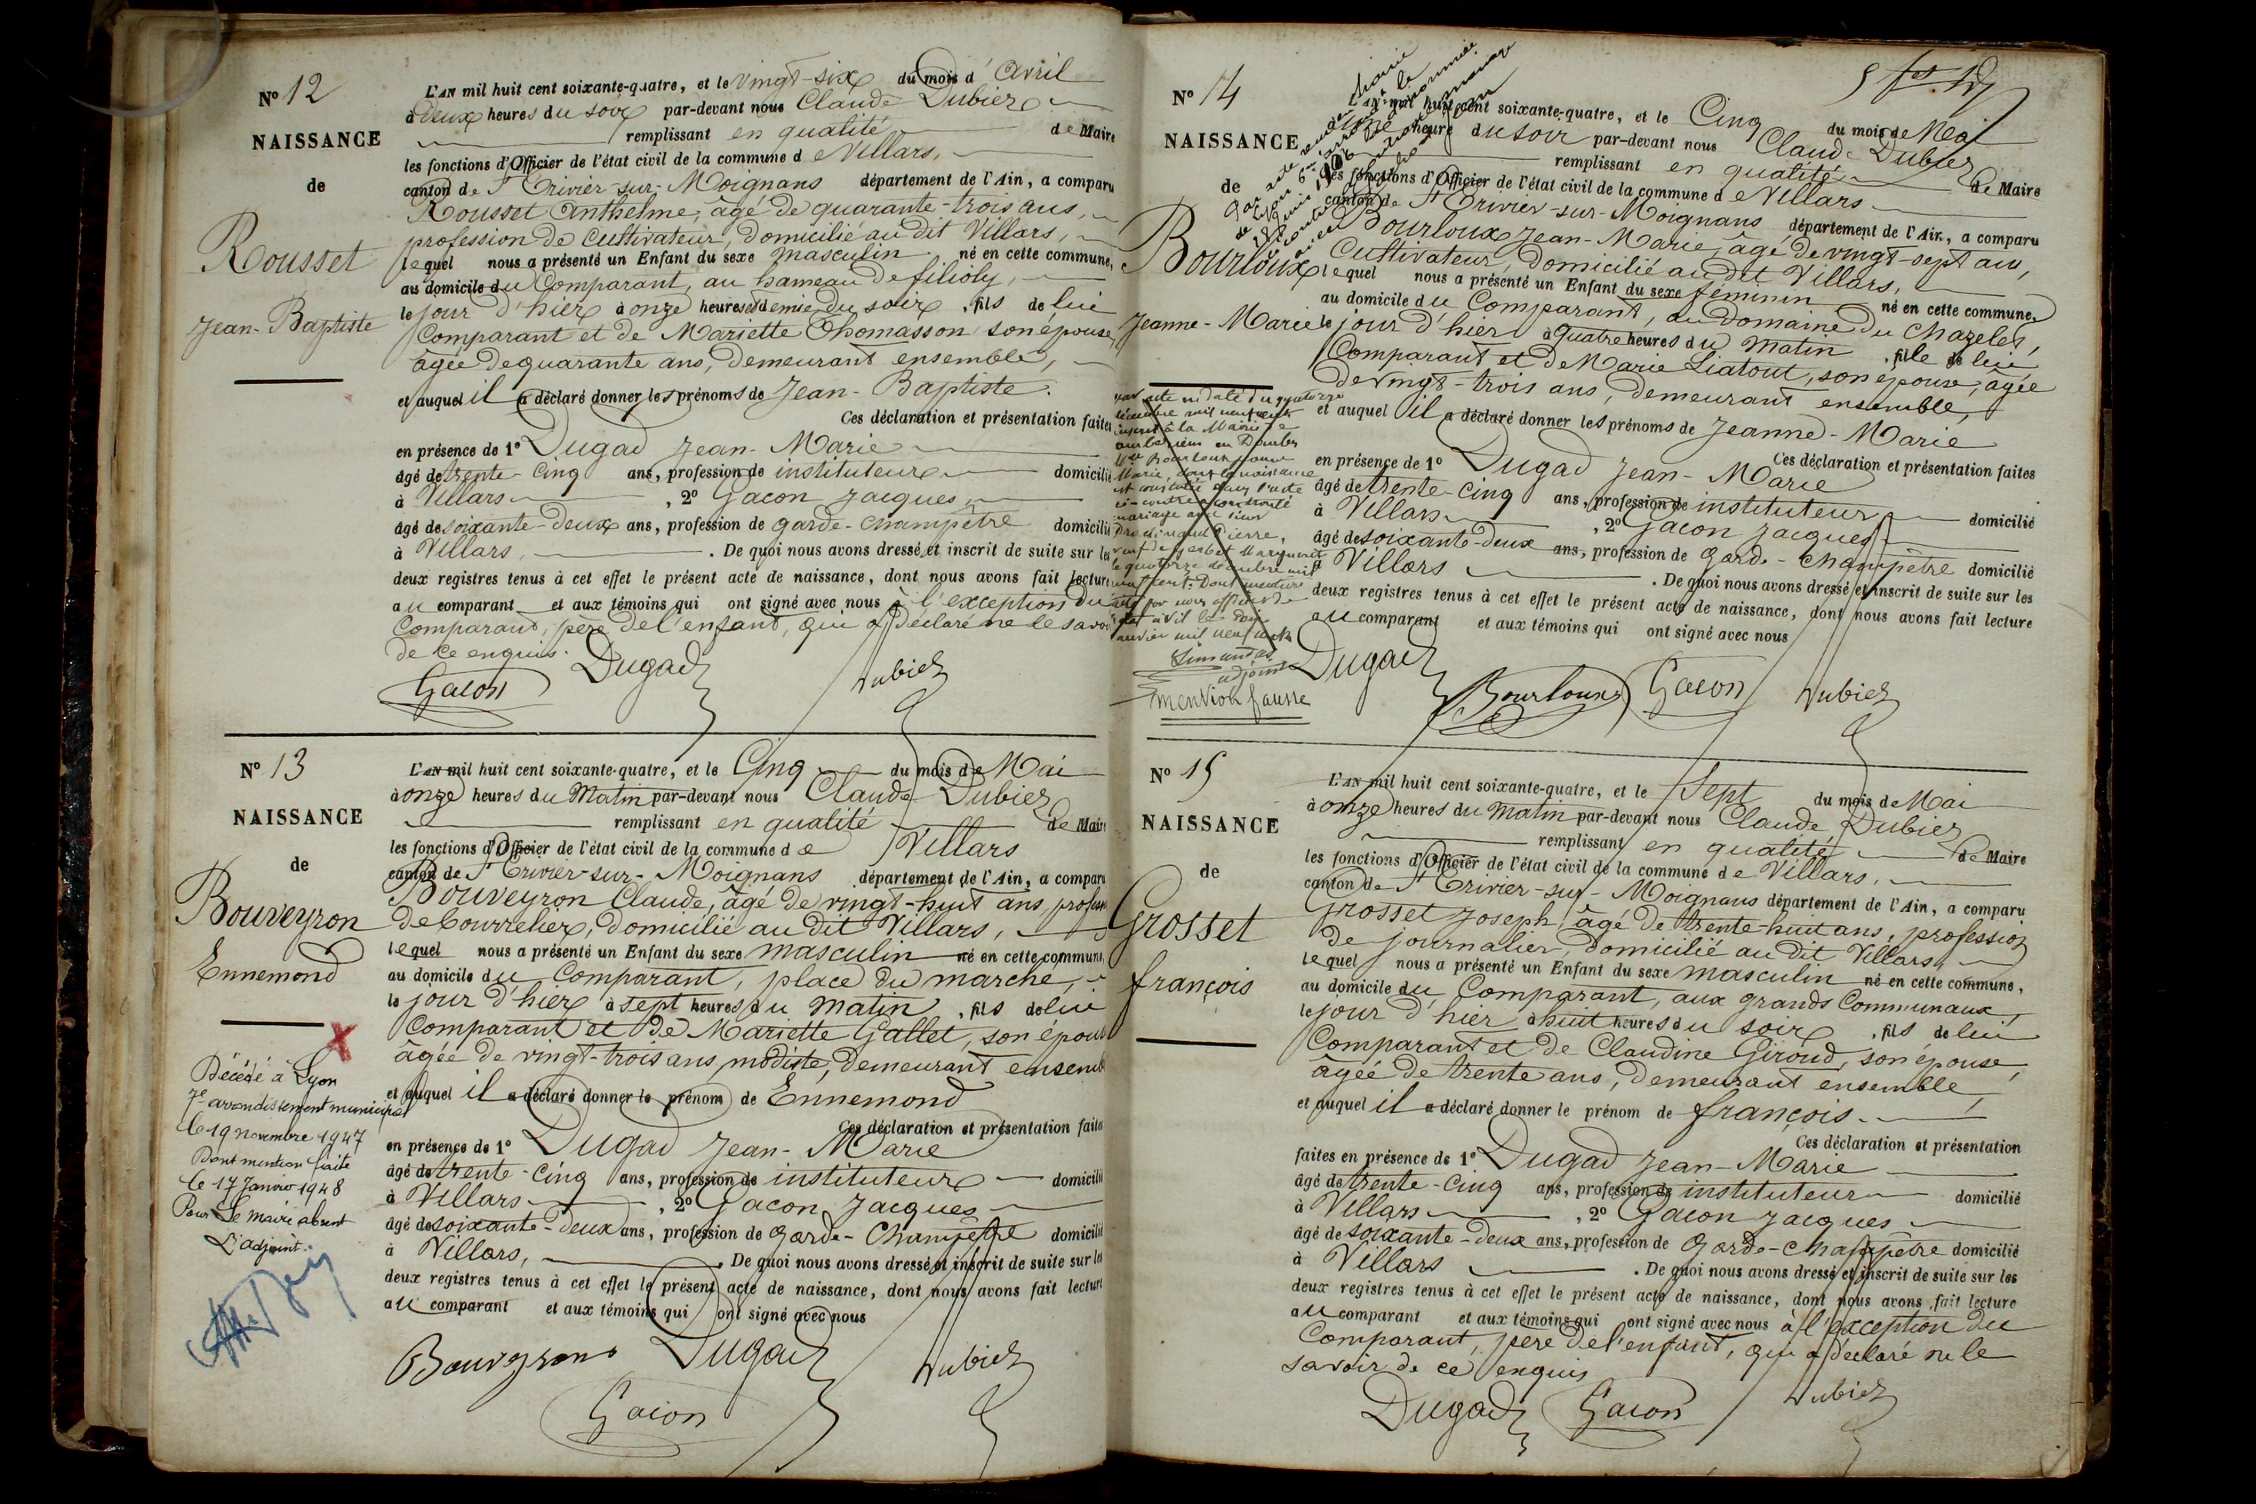 N° 12
NAISSANCE
de
Rousset
Jean-Baptiste
L'AN mil huit cent soixante-quatre, et le vingt-six du mois d'Avril
à deux heures du soir par-devant nous Claude Dubiez
remplissant en qualité de Maire
les fonctions d'Officier de l'état civil de la commune de Villars,
canton de St Trivier-sur-Moignans département de l'Ain, a comparu
Rousset Anthelme, âgé de quarante-trois ans,
profession de cultivateur, domicilié au dit Villars,
lequel nous a présenté un Enfant du sexe masculin né en cette commune,
au domicile du Comparant, au hameau de filioly,
le jour d'hier à onze heures & demie du soir, fils de lui
Comparant et de Mariette Thomasson son épouse,
âgée de quarante ans, demeurant ensemble,
et auquel il a déclaré donner les prénoms de Jean-Baptiste.
Ces déclaration et présentation faites
en présence de 1° Dugad Jean-Marie
âgé de trente-cinq ans, profession de instituteur domicilié
à Villars, 2° Gacon Jacques,
âgé de soixante-deux ans, profession de garde-champêtre domicilié
à Villars, . De quoi nous avons dressé et inscrit de suite sur les
deux registres tenus à cet effet le présent acte de naissance, dont nous avons fait lecture
au comparant et aux témoins qui ont signé avec nous à l'exception du
Comparant, père de l'enfant, qui a déclaré ne le savoir
de ce enquis.
Gacon Dugad Dubiez
N° 13
NAISSANCE
de
Bouveyron
Ennemond
Décédé à Lyon
7e arrondissement municipal
le 19 novembre 1947
Dont mention faite
le 17 Janvier 1948
Pour Le maire absent
L'adjoint.
L'AN mil huit cent soixante-quatre, et le Cinq du mois de Mai
à onze heures du Matin par-devant nous Claude Dubiez
remplissant en qualité de Maire
les fonctions d'Officier de l'état civil de la commune de Villars
canton de St Trivier-sur-Moignans département de l'Ain, a comparu
Bouveyron Claude, âgé de vingt-huit ans, profession
de bourrelier, domicilié au dit Villars,
lequel nous a présenté un Enfant du sexe masculin né en cette commune,
au domicile du Comparant, place du marché,
le jour d'hier à sept heures du matin, fils de lui
Comparant et de Mariette Gallet, son épouse
âgée de vingt-trois ans, modiste, demeurant ensemble
et auquel il a déclaré donner le prénom de Ennemond
Ces déclaration et présentation faites
en présence de 1° Dugad Jean-Marie
âgé de trente-cinq ans, profession de instituteur domicilié
à Villars, 2° Gacon Jacques
âgé de soixante-deux ans, profession de garde-Champêtre domicilié
à Villars, . De quoi nous avons dressé et inscrit de suite sur les
deux registres tenus à cet effet le présent acte de naissance, dont nous avons fait lecture
au comparant et aux témoins qui ont signé avec nous
Bouveyron Dugad Dubiez
Gacon
N° 14
NAISSANCE
de
Bourloux
Jeanne-Marie
mention fausse
L'AN mil huit cent soixante-quatre, et le Cinq du mois de Mai
à une heure du soir par-devant nous Claude Dubiez
remplissant en qualité de Maire
les fonctions d'Officier de l'état civil de la commune de Villars
canton de St Trivier-sur-Moignans département de l'Ain, a comparu
Bourloux Jean-Marie, âgé de vingt-sept ans,
Cultivateur, domicilié au dit Villars,
lequel nous a présenté un Enfant du sexe féminin né en cette commune,
au domicile du Comparant, au Domaine du Chazelet,
le jour d'hier à quatre heures du matin, fille de lui
Comparant et de Marie Liatout, son épouse, âgée
de vingt-trois ans, demeurant ensemble,
et auquel il a déclaré donner les prénoms de Jeanne-Marie
Ces déclaration et présentation faites
en présence de 1° Dugad Jean-Marie
âgé de trente-cinq ans, profession de instituteur domicilié
à Villars, 2° Gacon Jacques
âgé de soixante-deux ans, profession de garde-champêtre domicilié
à Villars . De quoi nous avons dressé et inscrit de suite sur les
deux registres tenus à cet effet le présent acte de naissance, dont nous avons fait lecture
au comparant et aux témoins qui ont signé avec nous
Dugad Bourloux Gacon Dubiez
N° 15
NAISSANCE
de
Grosset
françois
L'AN mil huit cent soixante-quatre, et le Sept du mois de Mai
à onze heures du Matin par-devant nous Claude Dubiez
remplissant en qualité de Maire
les fonctions d'Officier de l'état civil de la commune de Villars,
canton de St Trivier-sur-Moignans département de l'Ain, a comparu
Grosset Joseph, âgé de trente-huit ans, profession
de journalier, domicilié au dit Villars,
lequel nous a présenté un Enfant du sexe masculin né en cette commune,
au domicile du Comparant, aux grands Communaux,
le jour d'hier à huit heures du soir, fils de lui
Comparant et de Claudine Giroud, son épouse,
âgée de trente ans, demeurant ensemble,
et auquel il a déclaré donner le prénom de françois.
Ces déclaration et présentation
faites en présence de 1° Dugad Jean-Marie
âgé de trente-cinq ans, profession de instituteur domicilié
à Villars, 2° Gacon Jacques
âgé de soixante-deux ans, profession de Garde-champêtre domicilié
à Villars . De quoi nous avons dressé et inscrit de suite sur les
deux registres tenus à cet effet le présent acte de naissance, dont nous avons fait lecture
au comparant et aux témoins qui ont signé avec nous à l'exception du
Comparant, père de l'enfant, qui a déclaré ne le
savoir de ce enquis
Dugad Gacon Dubiez